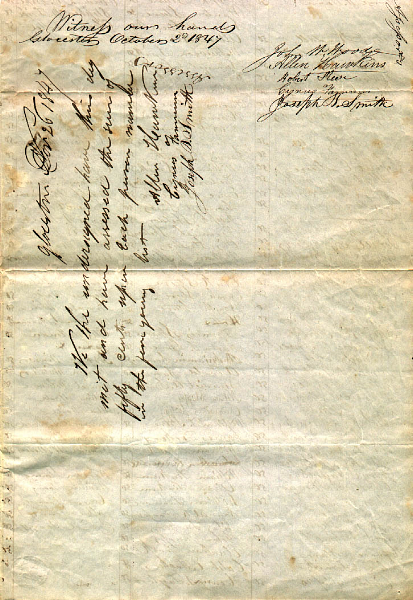 Witness our hands
Glocester October 2d 1847
John W Wood
Allen Hawkins
Robert
Cyrus Farnum
Joseph B. Smith
Glocester 26 1847
We the undersigned have this day
met and have assessed the sum of
fifty cents upon each person number
in the foregoing list
Allen Hawkins
Cyrus Farnum
Joseph B Smith
Assessors